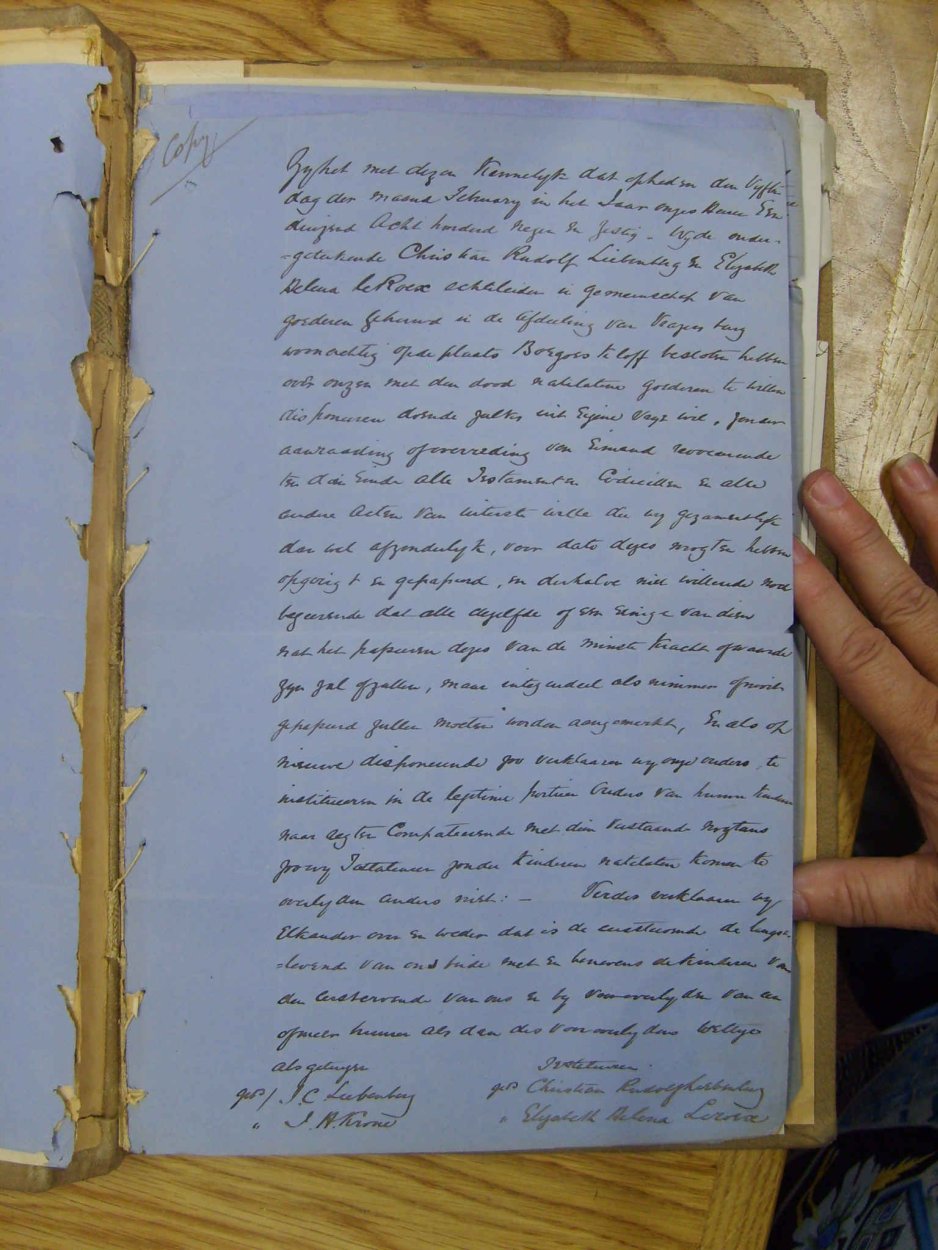 Copy
Zy het met dezen Kennelyk dat opheden den Vyfth
dag der maand February in het Jaar onzes Heere Een
duizend Acht honderd Negen en Zestig - Wy de onder-
-getekende Christian Rudolf Liebenberg En Elizabeth
Helena le Roex echtelieden in gemeenschap van
goederen gehuwd in de afdeeling van
woonachtig op de plaats Boegoes kloff besloten hebben
over onzen met den dood natelatene goederen te willen
disponeeren doende zulks uit Eigene vrye wil, zonder
aanraading of overreding van Eimand
ten dien Einde alle Testamenten Codicillen En alle
andere Acten van uiterste wille die wy gezamentlyk
dan wel afzonderlyk, voor dato dezes mogten hebben
opgerigt en gepaseerd, en derhalve niet willende noch
begeerende dat alle dezelfde of een Eenige van dien
na het passeeren dezes van de minste Kracht of waarde
zyn zal of zullen, maar integendeel als nimmer
gepaseerd zullen moeten worden aangemerkt, En als op
nieuwe disponeerende zoo verklaaren wy onze ouders te
institueeren in de legitime portien Ouders van hunne Kinderen
naar regten Competeerende met dien verstande nogtans
zoo wy Testateuren zonder Kinderen natelaten komen te
overlyden anders niet: - Verders verklaaren wy
Elkander over en weder dat is de eerststervende de langst
-levend van ons beide met En benevens de Kinderen van
den eerststervende van ons en by vooroverlyden van een
of meer hunner als dan des vooroverlydens Wettige
als getuigen Testateuren
get/ J. C. Liebenberg get/ Christian Rudolf Liebenberg
" J. H. Krone " Elizabeth Helena Leroex